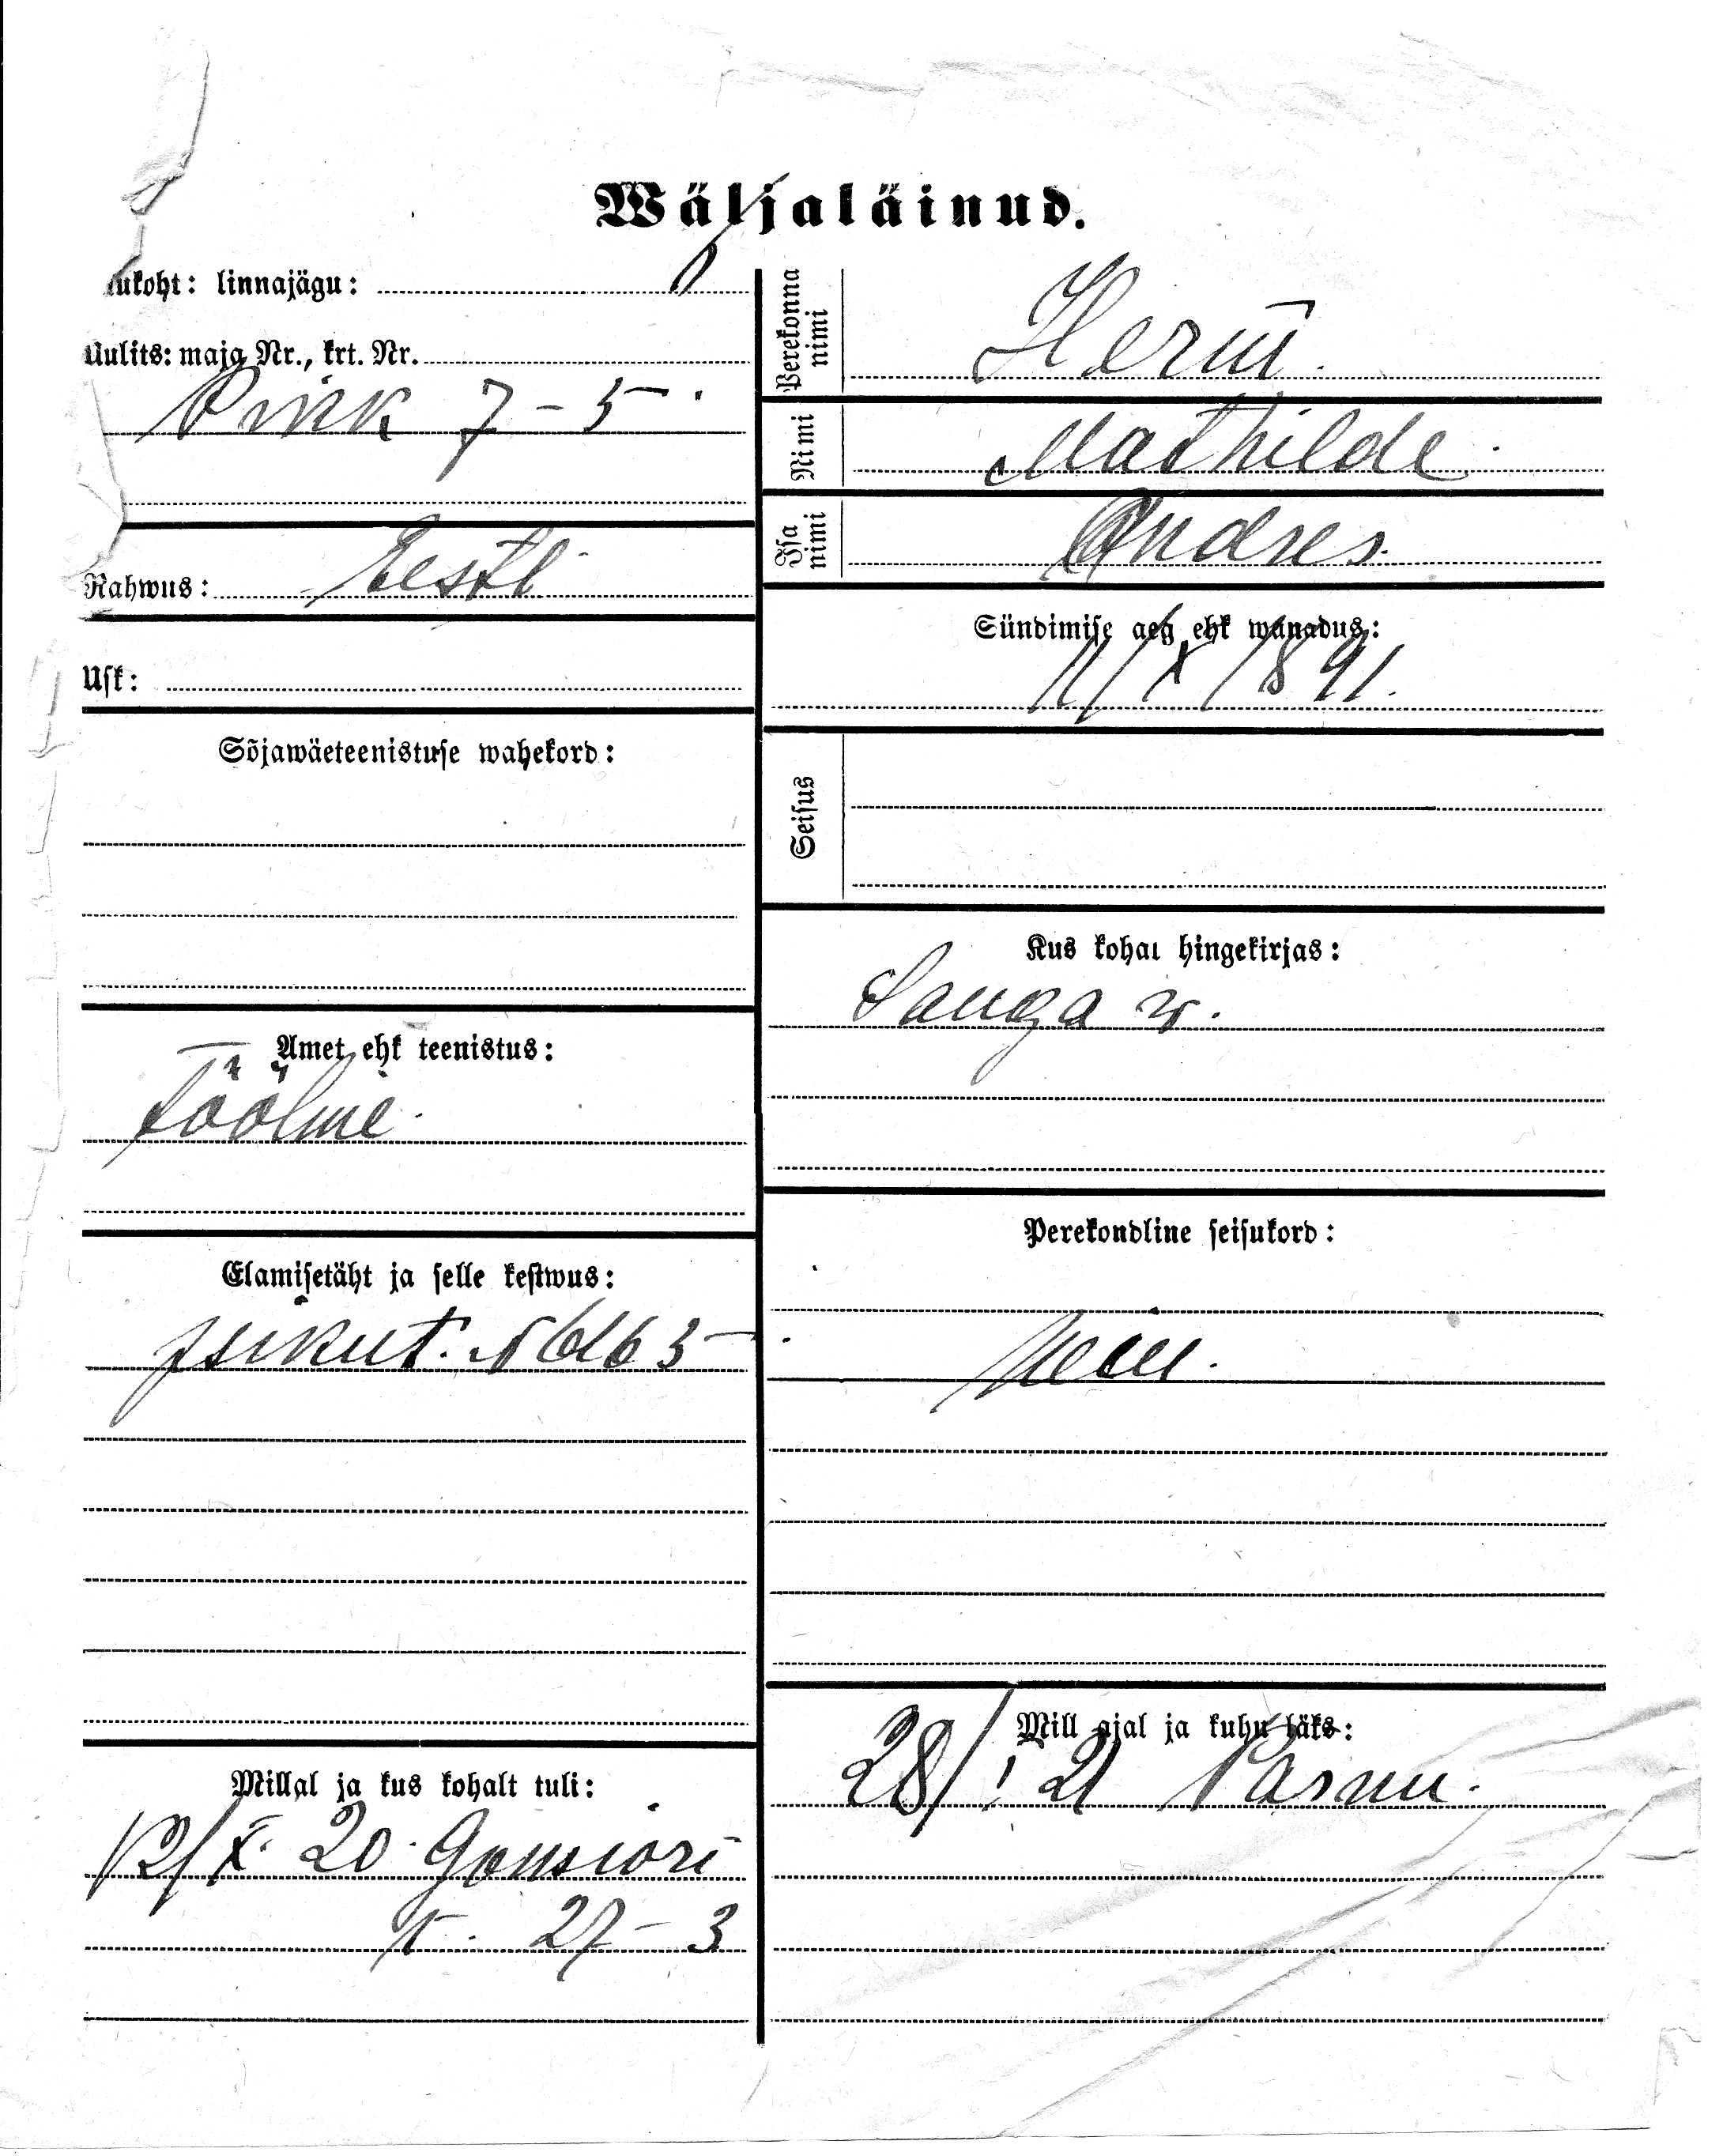 Wäljaläinud.
ukoht: linnajägu:
Uulits: maja Nr., krt. Nr.
Pikk 7-5.
Rahwus: Eesti
Usk:
Sõjawäeteenistuse wahekord:
Amet ehk teenistus:
Tööline.
Elamisetäht ja selle kestwus:
isikut. N
Millal ja kus kohalt tuli:
12/X. 20. Gonsiori
t. 27-3
Perekonna nimi
Herm.
Nimi
Mathilde.
Isa nimi
Andres.
Sündimise aeg ehk wanadus:
11/X 1891.
Seisus
Kus kohal hingekirjas:
Sauga w.
Perekondline seisukord:
Neiu.
Mill ajal ja kuhu läks:
28/I 21 Pärnu.